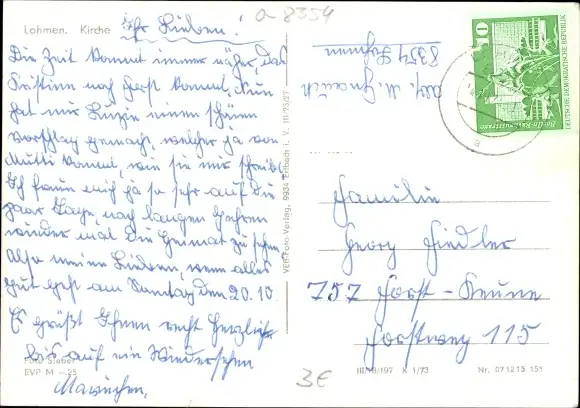 a 8354
Lohmen. Kirche
Ihr Lieben!
Die Zeit kommt immer näher, das
Christine nach Forst kommt. Nun
hat mir Luzie einen schönen
Vorschlag gemacht, welcher ja von
Mutti kommt, wie sie mir schreibt.
Ich freue mich ja so sehr auf die
paar Tage, nach langen Jahren
wieder mal die Heimat zu sehen.
Also meine Lieben, wenn alles
gut geht am Sonntag den 20.10.
Es grüßt Ihnen recht herzlich
bis auf ein Wiedersehen
Mariechen.
Foto Sieber
EVP M –.25
VEB Foto-Verlag, 9934 Erlbach i. V. III/23/27
Abs. M.
8354 Lohmen
10
DEUTSCHE DEMOKRATISCHE REPUBLIK
a
Familie
Georg Fiedler
757 Forst-Keune
Forstweg 115
3€
III/18/197 K 1/73
Nr. 07 12 13 151